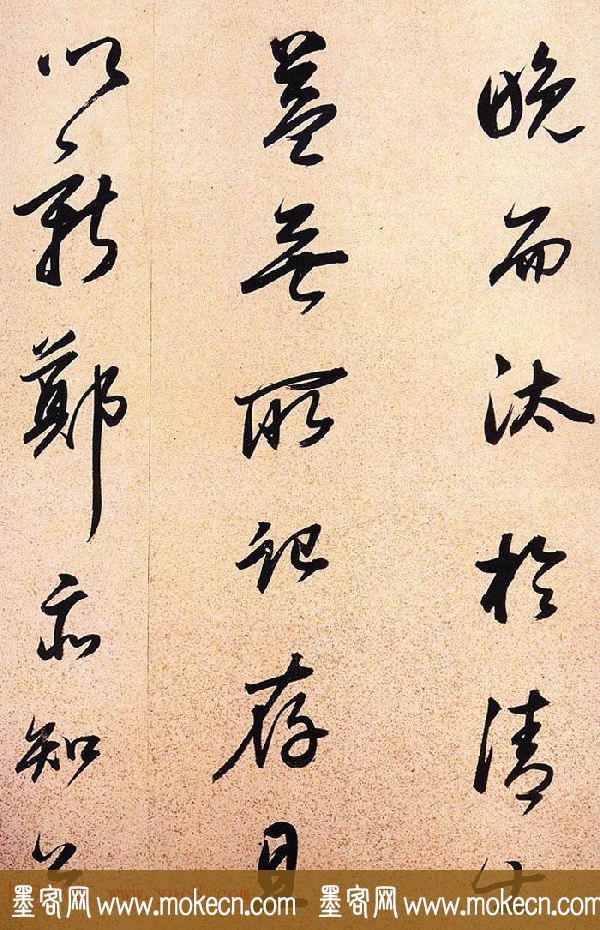 晚而汰於清
蓋無所記存
以新鄭亦知
墨客网 www.mokecn.com 墨客网 www.mokecn.com